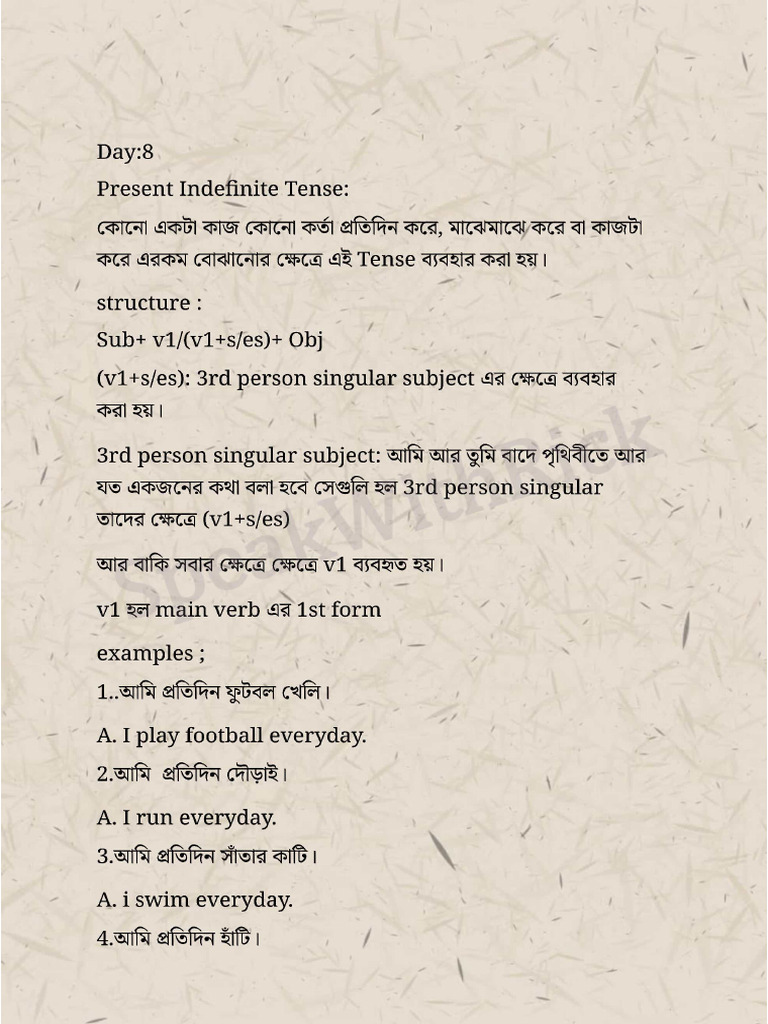 Day:8
Present Indefinite Tense:
কোনো একটা কাজ কোনো কর্তা প্রতিদিন করে, মাঝেমাঝে করে বা কাজটা
করে এরকম বোঝানোর ক্ষেত্রে এই Tense ব্যবহার করা হয়।
structure :
Sub+ v1/(v1+s/es)+ Obj
(v1+s/es): 3rd person singular subject এর ক্ষেত্রে ব্যবহার
করা হয়।
3rd person singular subject: আমি আর তুমি বাদে পৃথিবীতে আর
যত একজনের কথা বলা হবে সেগুলি হল 3rd person singular
তাদের ক্ষেত্রে (v1+s/es)
আর বাকি সবার ক্ষেত্রে ক্ষেত্রে v1 ব্যবহৃত হয়।
v1 হল main verb এর 1st form
examples ;
1..আমি প্রতিদিন ফুটবল খেলি।
A. I play football everyday.
2.আমি  প্রতিদিন দৌড়াই।
A. I run everyday.
3.আমি প্রতিদিন সাঁতার কাটি।
A. i swim everyday.
4.আমি প্রতিদিন হাঁটি।
SpeakWithRick